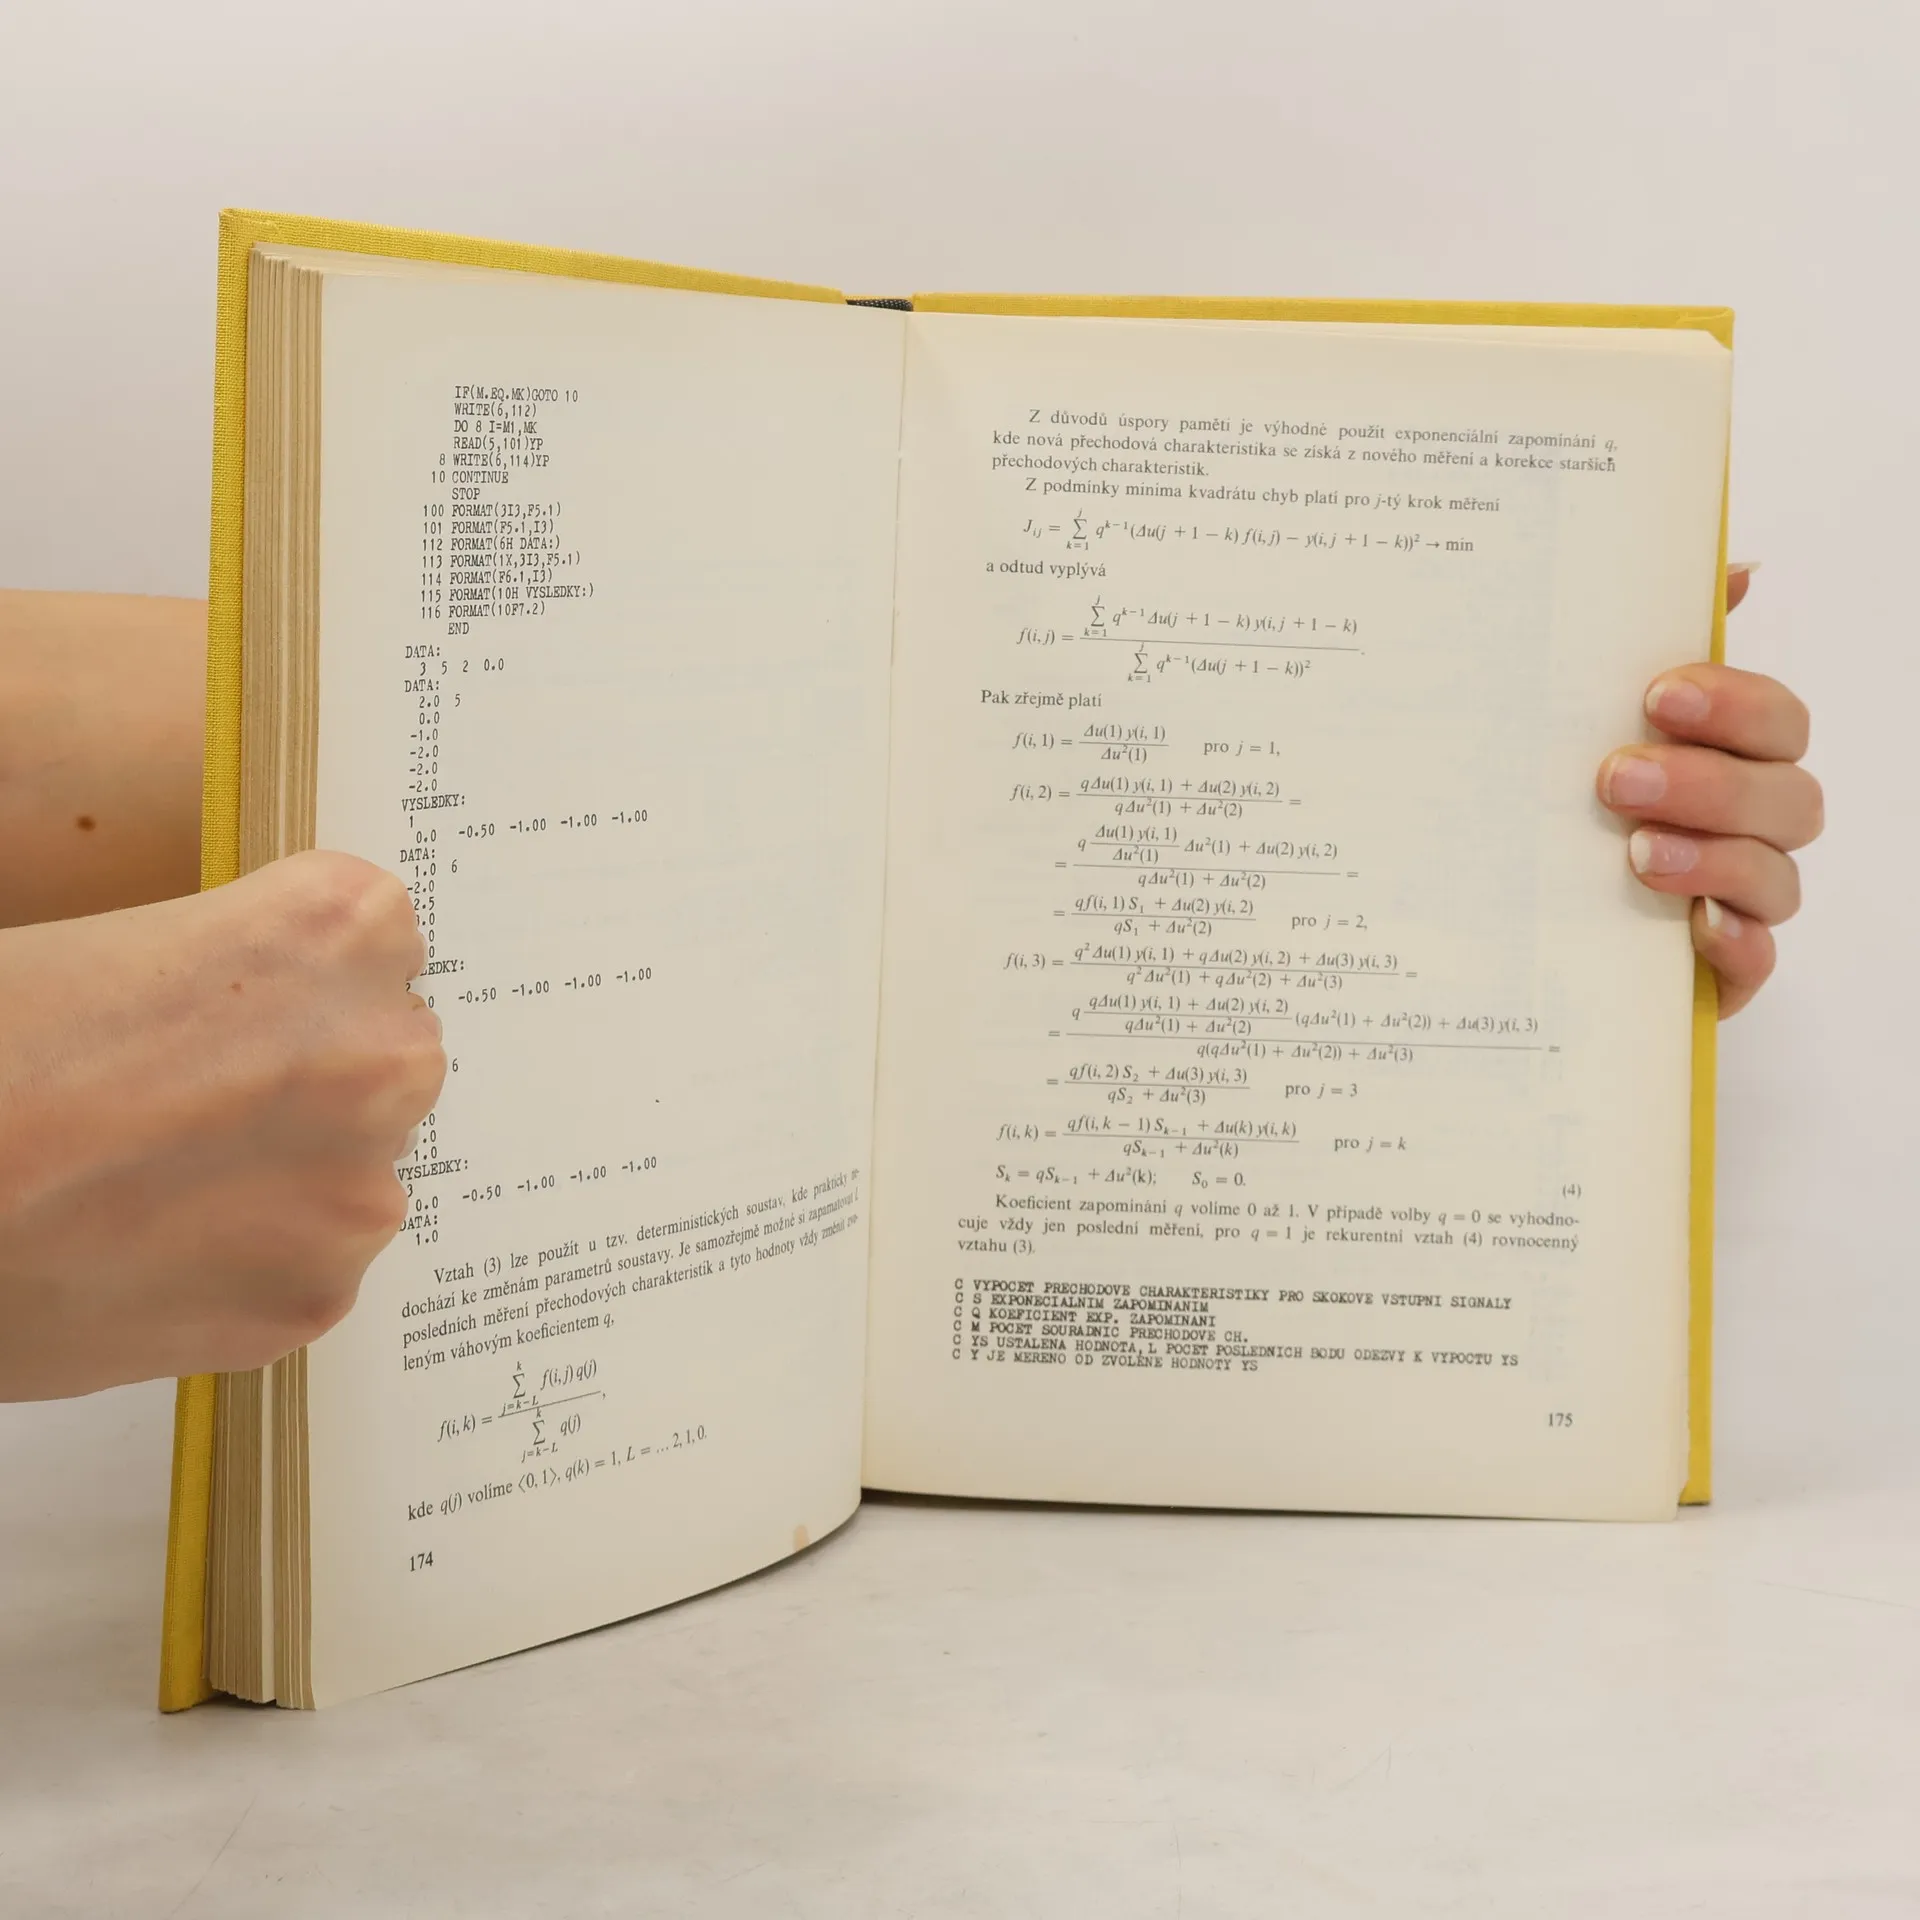 IF(M.EQ.MK)GOTO 10
WRITE(6,112)
DO 8 I=M1,MK
READ(5,101)YP
8 WRITE(6,114)YP
10 CONTINUE
STOP
100 FORMAT(3I3,F5.1)
101 FORMAT(F5.1,I3)
112 FORMAT(6H DATA:)
113 FORMAT(1X,3I3,F5.1)
114 FORMAT(F6.1,I3)
115 FORMAT(10H VYSLEDKY:)
116 FORMAT(10F7.2)
END
DATA:
3 5 2 0.0
DATA:
2.0 5
0.0
-1.0
-2.0
-2.0
-2.0
VYSLEDKY:
1
0.0 -0.50 -1.00 -1.00 -1.00
DATA:
1.0 6
-2.0
2.5
.0
0
0
LEDKY:
0 -0.50 -1.00 -1.00 -1.00
6
.0
.0
1.0
VYSLEDKY:
3
0.0 -0.50 -1.00 -1.00 -1.00
DATA:
1.0
Vztah (3) lze použít u tzv. deterministických soustav, kde prakticky ne-
dochází ke změnám parametrů soustavy. Je samozřejmě možné si zapamatovat L
posledních měření přechodových charakteristik a tyto hodnoty vždy změnit zvo-
leným váhovým koeficientem q,
f(i, k) = ∑_{j=k-L}^{k} f(i, j) q(j) / ∑_{j=k-L}^{k} q(j),
kde q(j) volíme ⟨0, 1⟩, q(k) = 1, L = ... 2, 1, 0.
174
Z důvodů úspory paměti je výhodné použít exponenciální zapomínání q,
kde nová přechodová charakteristika se získá z nového měření a korekce starších
přechodových charakteristik.
Z podmínky minima kvadrátu chyb platí pro j-tý krok měření
J_{ij} = ∑_{k=1}^{j} q^{k-1}(Δu(j + 1 − k) f(i, j) − y(i, j + 1 − k))² → min
a odtud vyplývá
f(i, j) = ∑_{k=1}^{j} q^{k-1} Δu(j + 1 − k) y(i, j + 1 − k) / ∑_{k=1}^{j} q^{k-1}(Δu(j + 1 − k))² .
Pak zřejmě platí
f(i, 1) = Δu(1) y(i, 1) / Δu²(1) pro j = 1,
f(i, 2) = (qΔu(1) y(i, 1) + Δu(2) y(i, 2)) / (qΔu²(1) + Δu²(2)) =
= (q (Δu(1) y(i, 1) / Δu²(1)) Δu²(1) + Δu(2) y(i, 2)) / (qΔu²(1) + Δu²(2)) =
= (qf(i, 1) S₁ + Δu(2) y(i, 2)) / (qS₁ + Δu²(2)) pro j = 2,
f(i, 3) = (q² Δu(1) y(i, 1) + qΔu(2) y(i, 2) + Δu(3) y(i, 3)) / (q² Δu²(1) + qΔu²(2) + Δu²(3)) =
= (q ((qΔu(1) y(i, 1) + Δu(2) y(i, 2)) / (qΔu²(1) + Δu²(2))) (qΔu²(1) + Δu²(2)) + Δu(3) y(i, 3)) / (q(qΔu²(1) + Δu²(2)) + Δu²(3)) =
= (qf(i, 2) S₂ + Δu(3) y(i, 3)) / (qS₂ + Δu²(3)) pro j = 3
f(i, k) = (qf(i, k − 1) S_{k−1} + Δu(k) y(i, k)) / (qS_{k−1} + Δu²(k)) pro j = k
S_k = qS_{k−1} + Δu²(k); S₀ = 0. (4)
Koeficient zapomínání q volíme 0 až 1. V případě volby q = 0 se vyhodno-
cuje vždy jen poslední měření, pro q = 1 je rekurentní vztah (4) rovnocenný
vztahu (3).
C VYPOCET PRECHODOVE CHARAKTERISTIKY PRO SKOKOVE VSTUPNI SIGNALY
C S EXPONECIALNIM ZAPOMINANIM
C Q KOEFICIENT EXP. ZAPOMINANI
C M POCET SOURADNIC PRECHODOVE CH.
C YS USTALENA HODNOTA, L POCET POSLEDNICH BODU ODEZVY K VYPOCTU YS
C Y JE MERENO OD ZVOLENE HODNOTY YS
175